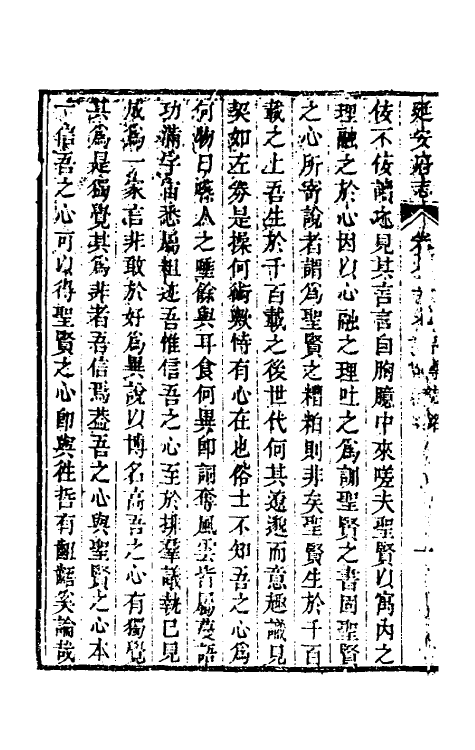 延安府志
伎不伎讀迄見其言言自胸臆中來嗟夫聖賢以寓内之
理融之於心因以心融之理吐之爲訓聖賢之書固聖賢
之心所寄說者謂爲聖賢之糟粕則非矣聖賢生於千百
載之上吾生於千百載之後世代何其遼邈而意趣識見
契如左券是操何術歟恃有心在也俗士不知吾之心爲
何物日啜人之唾餘與耳食何異即詞奪風雲皆屬蔓語
功滿宇宙悉屬粗迹吾惟信吾之心至於排羣議執已見
成爲一家言非敢於好爲異說以博名高吾之心有獨覺
其爲是獨覺其爲非者吾信焉葢吾之心與聖賢之心本
一信吾之心可以得聖賢之心即與徃哲有齟齬奚論哉